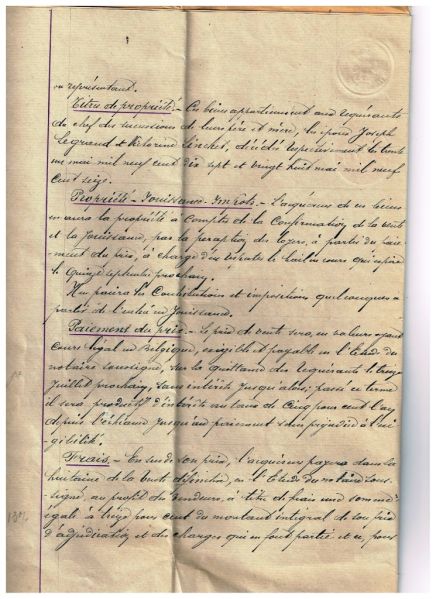 ou représentant.
Titres de propriété.- Ces biens appartiennent aux requérants
du chef des successions de leurs père et mère, les époux Joseph
Legrand et Victorine décédés respectivement le trente
un mai mil neuf cent dix sept et vingt huit mai mil neuf
cent seize.
Propriété - Jouissance - Impôts.- L'acquéreur de ces biens
en aura la propriété à compter de la Confirmation de la vente
et la Jouissance, par la perception des loyers, à partir du paie-
ment du prix, à charge de respecter le bail en cours qui expire
le quinze septembre prochain.
Il en paiera les Contributions et impositions quelconques à
partir de l'entrée en Jouissance.
Paiement du prix.- Le prix de vente sera, en valeurs ayant
cours légal en Belgique, exigible et payable en l'Etude du
notaire soussigné, sur la quittance des requérants le treize
Juillet prochain, sans intérêts jusqu'alors; passé ce terme
il sera productif d'intérêts au taux de Cinq pour cent l'an
depuis l'échéance jusqu'au paiement sans préjudice à l'exi-
gibilité.
Frais.- En sus de son prix, l'acquéreur payera dans la
huitaine de la vente définitive, en l'Etude du notaire sous-
signé, au profit des vendeurs, à titre de frais une somme
égale à treize pour cent du montant intégral de son prix
d'adjudication et des charges qui en font partie et ce, pour
13%